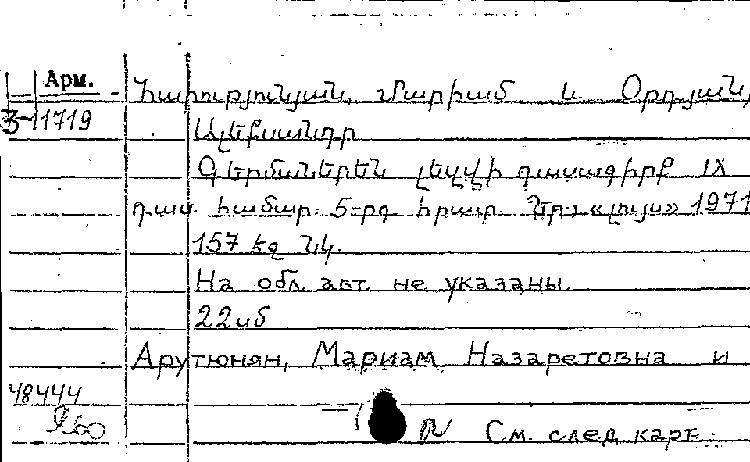 Арм.
З-11719
Հարությունյան, Մարիամ և Օրդյան,
Ալեքսանդր
Գերմաներեն լեզվի դասագիրք IX
դաս. համար. 5-րդ հրատ. Եր. «Լույս» 1971
157 էջ նկ.
На обл. авт. не указаны.
22սմ
Арутюнян, Мариам Назаретовна и
48444
См. след карт